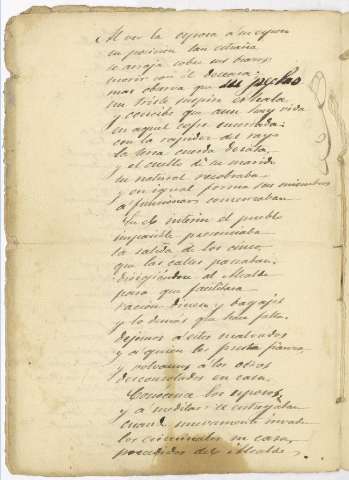 Al ver la esposa á su esposo
en posicion tan estraña
se arroja sobre sus brazos
morir con él deseaba;
mas observa que su pecho
un triste suspiro exhala
y conoció que aun hay vida
en aquel cuerpo encerrada:
con la rapidez del rayo
la tosca cuerda desata,
el cuello de su marido
su natural recobraba
y en igual forma sus miembros
á funcionar comenzaban
En el interin el pueblo
impasible presenciaba
la salida de los cinco
que las calles paseaban.
dirigiéndose al Alcalde
para que facilitara
racion dinero y bagajes
y lo demás que hace falta.
dejemos á estos malvados
y á quien les presta fianza,
y volvamos á los otros
desconsolados en casa.
los esposos
y á meditar se entregaban
cuando nuevamente invaden
los criminales su casa,
precedidos del Alcalde